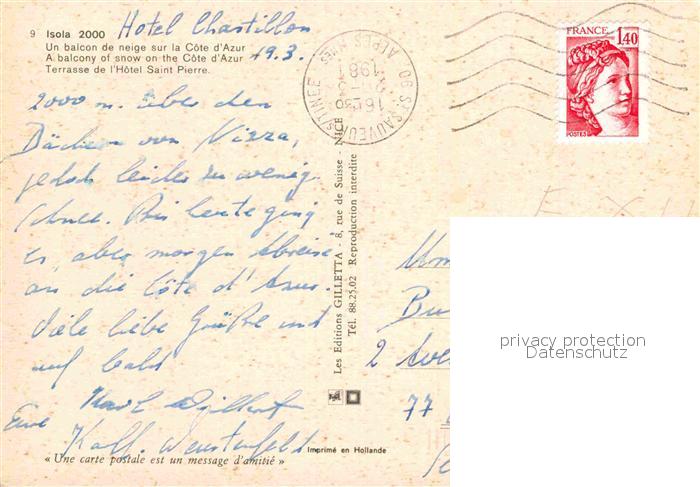 9 Isola 2000 Hotel Chastillon
Un balcon de neige sur la Côte d'Azur 19.3.
A balcony of snow on the Côte d'Azur
Terrasse de l'Hôtel Saint Pierre.
2000 m. über den
Dächern von Nizza,
jedoch leider zu wenig
Schnee. Bis heute ging
es, aber morgen Abreise
an die Côte d'Azur.
Viele liebe Grüße und
auf bald
Eure
« Une carte postale est un message d'amitié »
Les Editions GILLETTA - 8, rue de Suisse - NICE
Tél. 88.25.02 Reproduction interdite
Imprimé en Hollande
06 St SAUVEUR s/TINEE
ALPES
FRANCE
1,40
POSTES
2 Ave
77
privacy protection
Datenschutz